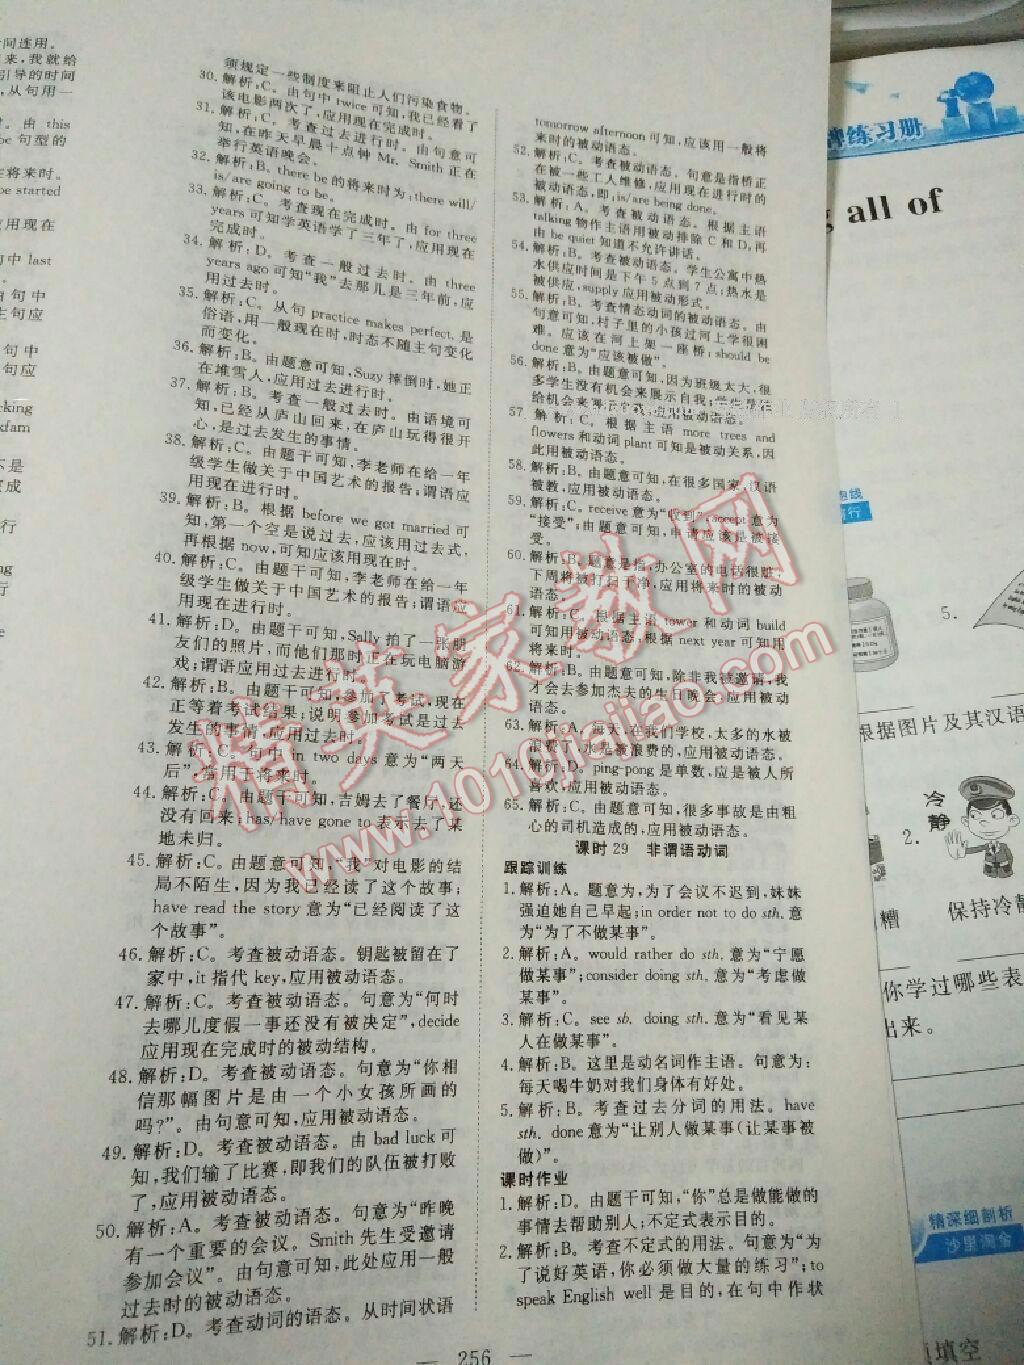 间连用。
来，我就给
引导的时间
，从句用一
由 this
be 句型的
将来时。
be started
应用现在
句中 last
句中
主句应
句中
句应
cking
kfam
不是
完成
间
行
须规定一些制度来阻止人们污染食物。
30. 解析：C。由句中 twice 可知，我已经看了
该电影两次了，应用现在完成时。
31. 解析：C。考查过去进行时。由句意可
知，在昨天早晨十点钟 Mr. Smith 正在
举行英语晚会。
32. 解析：B。there be 的将来时为：there will/
is/are going to be。
33. 解析：C。考查现在完成时。由 for three
years 可知学英语学了三年了，应用现在
完成时。
34. 解析：D。考查一般过去时。由 three
years ago 可知“我”去那儿是三年前，应
用过去时。
35. 解析：C。从句 practice makes perfect. 是
俗语，用一般现在时，时态不随主句变化
而变化。
36. 解析：B。由题意可知，Suzy 摔倒时，她正
在堆雪人，应用过去进行时。
37. 解析：B。考查一般过去时。由语境可
知，已经从庐山回来，在庐山玩得很开
心，是过去发生的事情。
38. 解析：C。由题干可知，李老师在给一年
级学生做关于中国艺术的报告；谓语应
用现在进行时。
39. 解析：B。根据 before we got married 可
知，第一个空是说过去，应该用过去式，
再根据 now，可知应该用现在时。
40. 解析：C。由题干可知，李老师在给一年
级学生做关于中国艺术的报告；谓语应
用现在进行时。
41. 解析：D。由题干可知，Sally 拍了一张朋
友们的照片，而他们那时正在玩电脑游
戏；谓语应用过去进行时。
42. 解析：B。由题干可知，参加了考试，现在
正等着考试结果；说明参加考试是过去
发生的事情，应用过去时。
43. 解析：C。句中 in two days 意为“两天
后”，常用于将来时。
44. 解析：C。由题干可知，吉姆去了餐厅，还
没有回来；has/have gone to 表示去了某
地未归。
45. 解析：C。由题意可知，“我”对电影的结
局不陌生，因为我已经读了这个故事；
have read the story 意为“已经阅读了这
个故事”。
46. 解析：C。考查被动语态。钥匙被留在了
家中，it 指代 key，应用被动语态。
47. 解析：C。考查被动语态。句意为“何时
去哪儿度假一事还没有被决定”，decide
应用现在完成时的被动结构。
48. 解析：D。考查被动语态。句意为“你相
信那幅图片是由一个小女孩所画的
吗？”。由句意可知，应用被动语态。
49. 解析：D。考查被动语态。由 bad luck 可
知，我们输了比赛，即我们的队伍被打败
了，应用被动语态。
50. 解析：A。考查被动语态。句意为“昨晚
有一个重要的会议。Smith 先生受邀请
参加会议”。由句意可知，此处应用一般
过去时的被动语态。
51. 解析：D。考查动词的语态。从时间状语
tomorrow afternoon 可知，应该用一般将
来时的被动语态。
52. 解析：C。考查被动语态。句意是指桥正
在被一些工人维修，应用现在进行时的
被动语态，即：is/are being done。
53. 解析：A。考查被动语态。根据主语
talking 物作主语用被动排除 C 和 D，再
由 be quiet 知道不允许讲话。
54. 解析：B。考查被动语态。学生公寓中热
水供应时间是下午 5 点到 7 点；热水是
被供应，supply 应用被动形式。
55. 解析：B。考查情态动词的被动语态。由
句意可知，村子里的小孩过河上学很困
难。应该在河上架一座桥；should be
done 意为“应该被做”。
56. 解析：B。由题意可知，因为班级太大，很
多学生没有机会来展示自我；学生是被
给机会来展示自我，应用被动语态。
57. 解析：C。根据主语 more trees and
flowers 和动词 plant 可知是被动关系，因
此用被动语态。
58. 解析：B。由题意可知，在很多国家，汉语
被教，应用被动语态。
59. 解析：C。receive 意为“收到”，accept 意为
“接受”；由题意可知，申请应该是被接
受。
60. 解析：B。题意是指：办公室的电话很脏，
下周将被打扫干净，应用将来时的被动
语态。
61. 解析：C。根据主语 tower 和动词 build
可知用被动语态；根据 next year 可知用
将来时。
62. 解析：B。由题意可知，除非我被邀请，我
才会去参加杰夫的生日晚会，应用被动
语态。
63. 解析：A。每天，在我们学校，太多的水被
浪费了，水是被浪费的，应用被动语态。
64. 解析：D。ping-pong 是单数，应是被人所
喜欢，应用被动语态。
65. 解析：C。由题意可知，很多事故是由粗
心的司机造成的，应用被动语态。
课时 29 非谓语动词
跟踪训练
1. 解析：A。题意为，为了会议不迟到，妹妹
强迫她自己早起；in order not to do sth. 意
为“为了不做某事”。
2. 解析：A。would rather do sth. 意为“宁愿
做某事”；consider doing sth. 意为“考虑做
某事”。
3. 解析：C。see sb. doing sth. 意为“看见某
人在做某事”。
4. 解析：B。这里是动名词作主语。句意为：
每天喝牛奶对我们身体有好处。
5. 解析：B。考查过去分词的用法。have
sth. done 意为“让别人做某事（让某事被
做）”。
课时作业
1. 解析：D。由题干可知，“你”总是做能做的
事情去帮助别人；不定式表示目的。
2. 解析：B。考查不定式的用法。句意为“为
了说好英语，你必须做大量的练习”；to
speak English well 是目的，在句中作状
— 256 —
精英家教网
www.1010jiajiao.com
练习册
all of
5.
根据图片及其汉语
冷静
2.
糟
保持冷静
你学过哪些表
出来。
精深细剖析
沙里淘金
填空